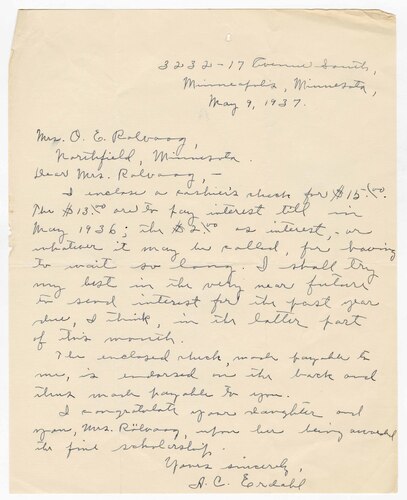 3232-17 Avenue South,
Minneapolis, Minnesota,
May 9, 1937.
Mrs. O. E. Rolvaag,
Northfield, Minnesota.
Dear Mrs. Rolvaag,-
I enclose a cashier's check for $15.00.
The $13.00 are to pay interest till in
May 1936; the $2.00 as interest, or
whatever it may be called, for having
to wait so long. I shall try
my best in the very near future
to send interest for the past year
due, I think, in the latter part
of this month.
The enclosed check, made payable to
me, is endorsed on the back and
thus made payable to you.
I congratulate your daughter and
you, Mrs. Rölvaag, upon her being awarded
the fine scholarship.
Yours sincerely,
A. C. Erdahl